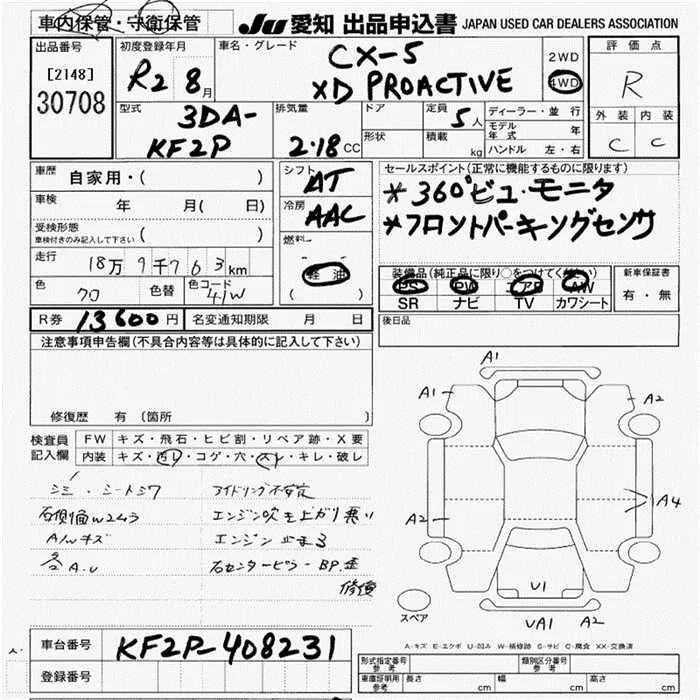 車内保管・守衛保管
JU 愛知 出品申込書 JAPAN USED CAR DEALERS ASSOCIATION
出品番号
[2148]
30708
初度登録年月
R2 8月
車名・グレード
CX-5
XD PROACTIVE
2WD
4WD
評価点
R
外装 内装
C C
型式
3DA-
KF2P
排気量
2.18 CC
ドア
形状
定員 5人
積載 kg
ディーラー・並行
モデル年式 年
ハンドル 左・右
車歴
自家用・( )
車検 年 月( 日)
受検形態
車検付きのみ記入して下さい ( )
走行 18万9千763km
色 クロ 色替 色コード 41W
シフト AT
冷房 AAC
燃料
軽油
( )
セールスポイント(正常に機能するものに限ります)
*360°ビュ・モニタ
*フロントパーキングセンサ
装備品(純正品に限り○をつけてください)
PS PW AW
SR ナビ TV カワシート
新車保証書
有・無
R券 13600円 名変通知期限 月 日
後日品
注意事項申告欄(不具合内容等は具体的に記入して下さい)
修復歴 有(箇所 )
検査員
記入欄
FW キズ・飛石・ヒビ割・リペア跡・X要
内装 キズ・汚レ・コゲ・穴・スレ・キレ・破レ
シミ・シートシワ アイドリング不安定
エンジン吹き上がり悪い
A/Wキズ エンジン止まる
各A.U 右センターピラー BP.歪
修復
A1
A1 A2
A2 A4
U1
UA1 A2
スペア
A-キズ E-エクボ U-凹み W-補修跡 S-サビ C-腐食 XX-交換済
車台番号 KF2P-408231
登録番号
型式指定番号
参考
類別区分番号
参考
車庫証明用
参考
長さ cm 幅 cm 高さ cm